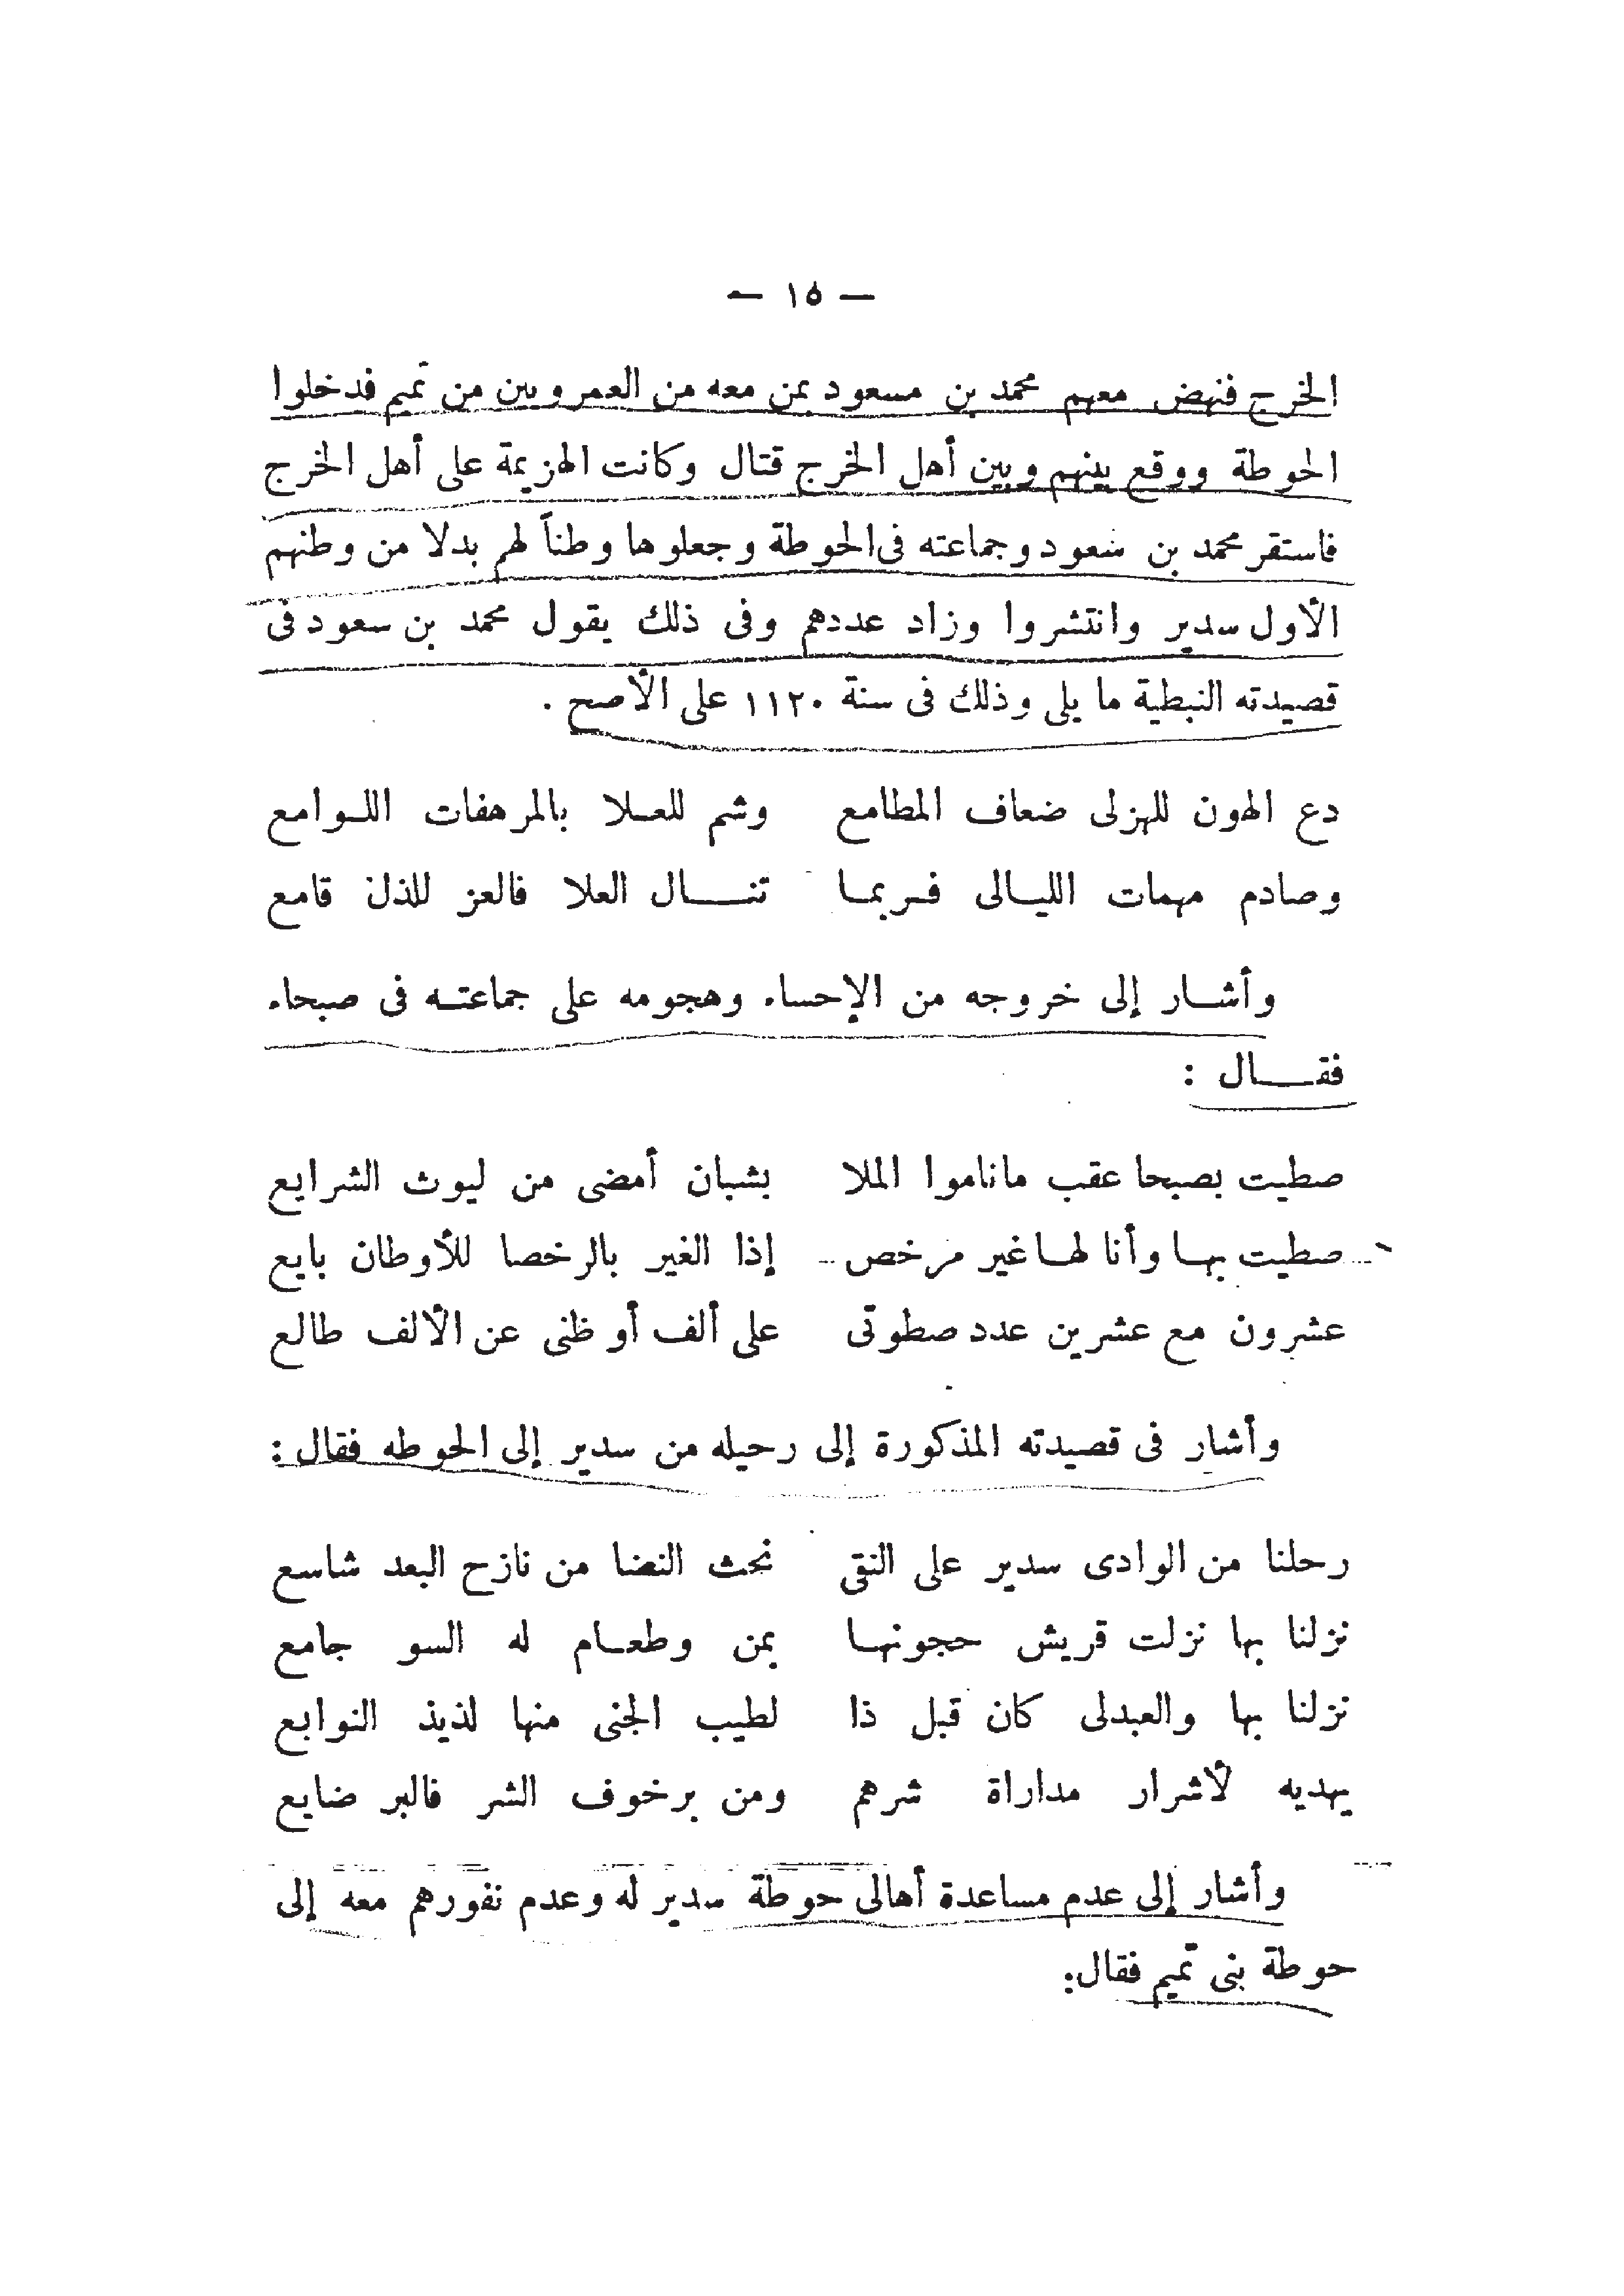 — ١٥ —
الخرج فنهض معهم محمد بن مسعود بمن معه من العمرويين من تميم فدخلوا
الحوطة ووقع بينهم وبين أهل الخرج قتال وكانت الهزيمة على أهل الخرج
فاستقر محمد بن سعود وجماعته فى الحوطة وجعلوها وطناً لهم بدلا من وطنهم
الأول سدير وانتشروا وزاد عددهم وفى ذلك يقول محمد بن سعود فى
قصيدته النبطية ما يلى وذلك فى سنة ١١٢٠ على الأصح .
دع الهون للهزلى ضعاف المطامع وشم للعـلا بالمرهفات اللـوامع
وصادم مهمات الليـالى فـربمـا تنـــال العلا فالعز للذل قامع
وأشـار إلى خروجه من الإحساء وهجومه على جماعتـه فى صبحاء
فقـــال :
صطيت بصبحا عقب ماناموا الملا بشبان أمضى من ليوث الشرايع
صطيت بهـا وأنا لهـا غير مرخص إذا الغير بالرخصا للأوطان بايع
عشرون مع عشرين عدد صطوتى على ألف أو ظنى عن الألف طالع
وأشار فى قصيدته المذكورة إلى رحيله من سدير إلى الحوطه فقال :
رحلنا من الوادى سدير على النقى نحث النضا من نازح البعد شاسع
نزلنا بها نزلت قريش حجونهـا بمن وطعـام له السو جامع
نزلنا بها والعبدلى كان قبل ذا لطيب الجنى منها لذيذ النوابع
يهديه لأشرار مداراة شرهم ومن برخوف الشر فالبر ضايع
وأشار إلى عدم مساعدة أهالى حوطة سدير له وعدم نفورهم معه إلى
حوطة بنى تميم فقال: